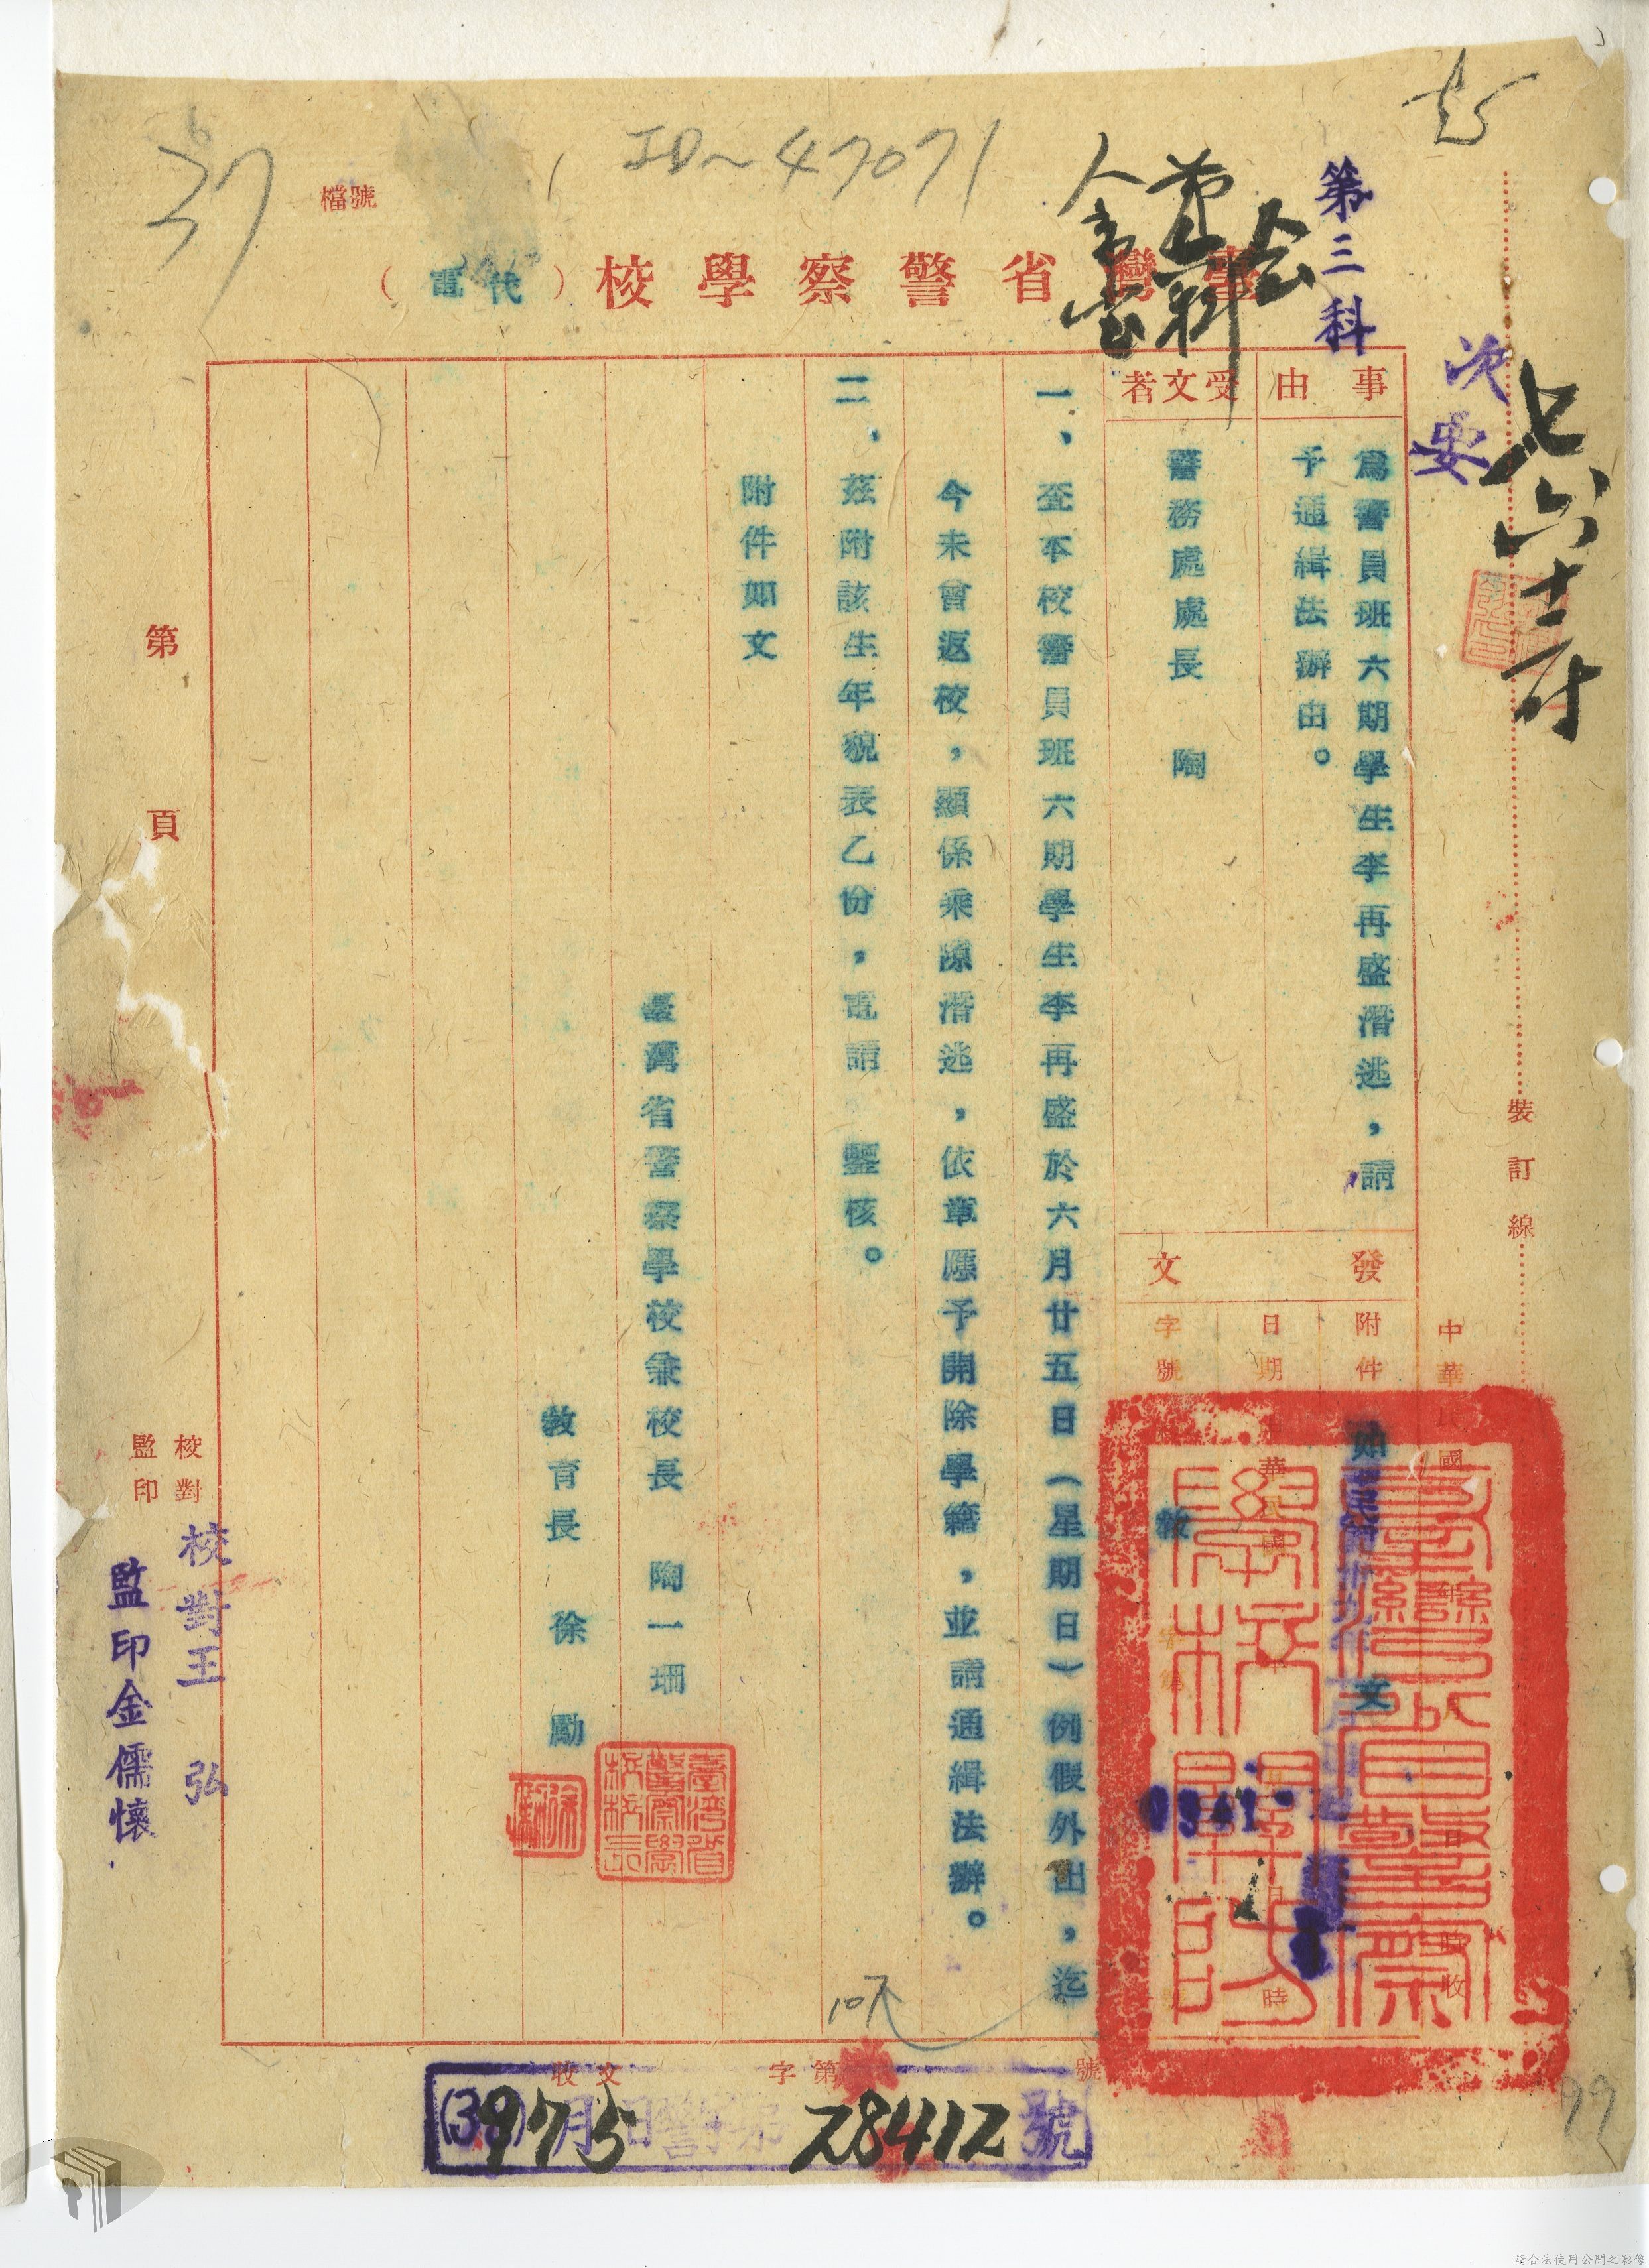 第三科
次要
ID~47071
檔號
37
臺灣省警察學校（代電）
事由
為警員班六期學生李再盛潛逃，請
予通緝法辦由。
受文者
警務處處長　陶
發文
附件
如文
日期
字號
中華民國
一、查本校警員班六期學生李再盛於六月廿五日（星期日）例假外出，迄
今未曾返校，顯係乘隙潛逃，依章應予開除學籍，並請通緝法辦。
二、茲附該生年貌表乙份，電請　鑒核。
附件如文
臺灣省警察學校兼校長　陶一珊
教育長　徐　勵
臺灣省警察學校校長
裝訂線
第　頁
校對
監印
校對王　弘
監印金儒懷
收文　字第　號
28412
號
請合法使用公開之影像